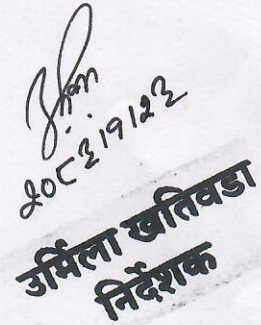 २०८३।१।२३
उर्मिला खतिवडा
निर्देशक